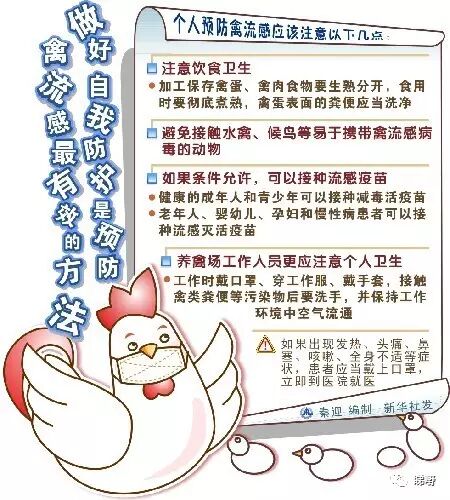 做好自我防护是预防
禽流感最有效的方法
个人预防禽流感应该注意以下几点：
注意饮食卫生
加工保存禽蛋、禽肉食物要生熟分开，食用
时要彻底煮熟，禽蛋表面的粪便应当洗净
避免接触水禽、候鸟等易于携带禽流感病
毒的动物
如果条件允许，可以接种流感疫苗
健康的成年人和青少年可以接种减毒活疫苗
老年人、婴幼儿、孕妇和慢性病患者可以接
种流感灭活疫苗
养禽场工作人员更应注意个人卫生
工作时戴口罩、穿工作服、戴手套，接触
禽类粪便等污染物后要洗手，并保持工作
环境中空气流通
如果出现发热、头痛、鼻
塞、咳嗽、全身不适等症
状，患者应当戴上口罩，
立即到医院就医
秦迎 编制 新华社发